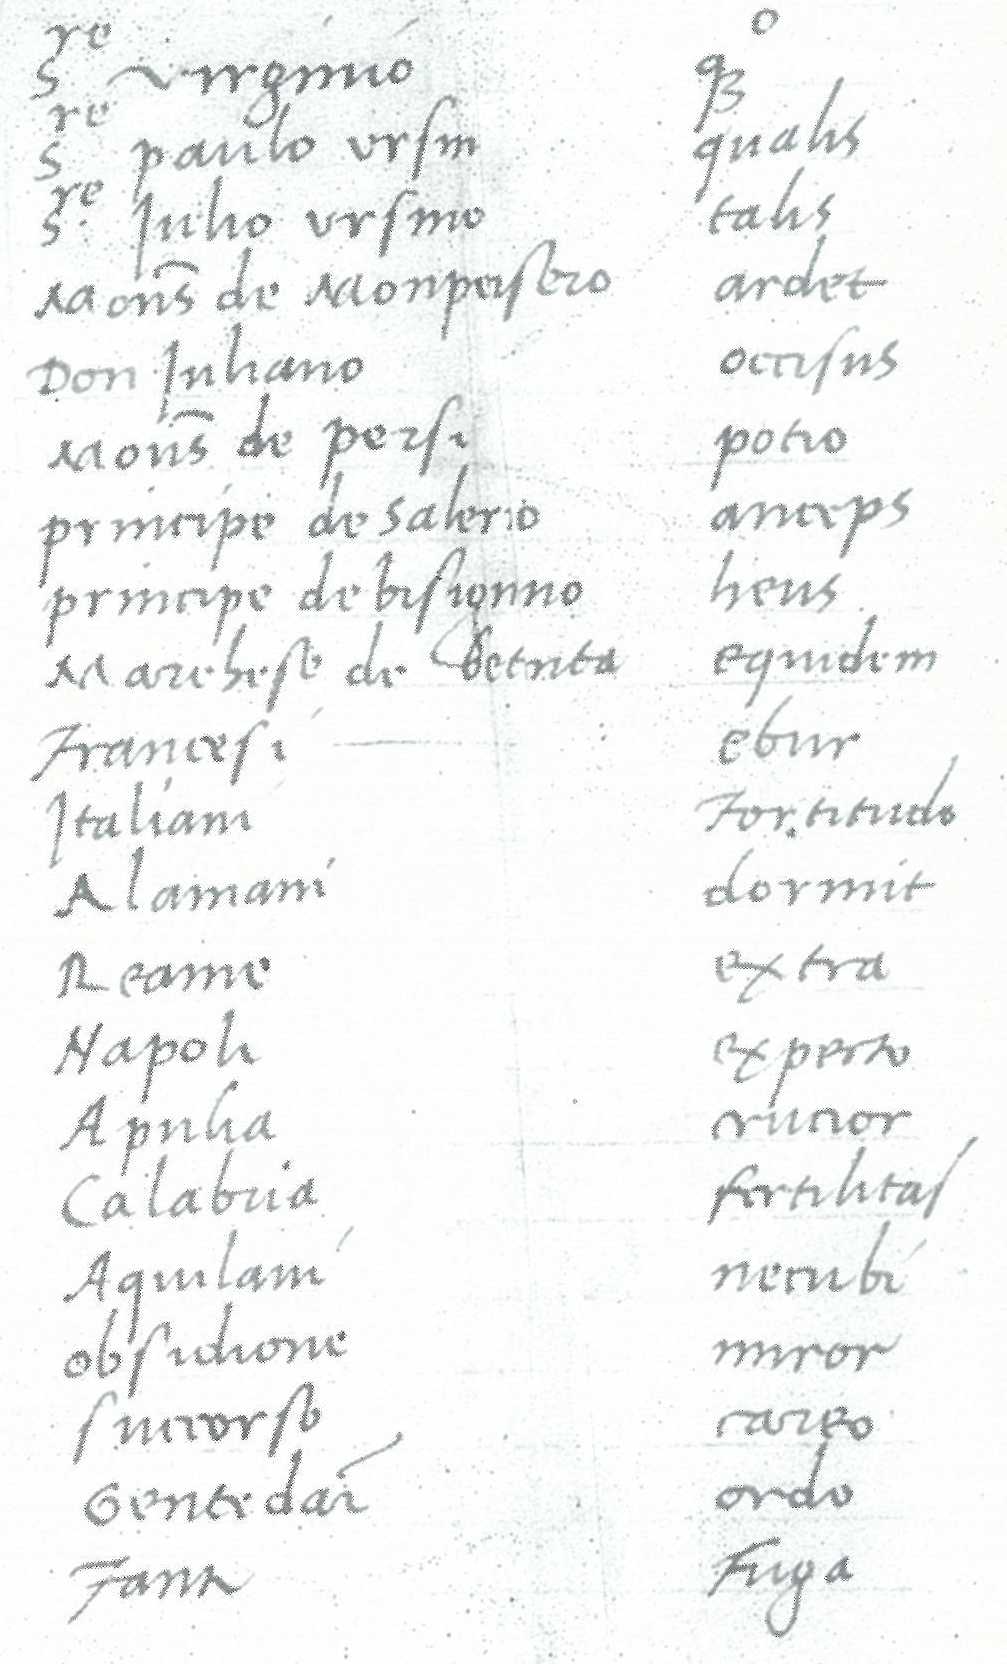 S.re Virginio
S.re paulo vrsin qualis
S.re Julio vrsino talis
Mons de Monpensero ardet
Don Juliano occisus
Mons de persi potio
principe de salerno anceps
principe de bisignno heus
Marchese de betuta equidem
Francesi ebur
Italiani Fortitudo
Alamani dormit
Reame extra
Napoli experto
Apulia crucior
Calabria fertilitas
Aquilani necubi
obsidione miror
succorso careo
Gente dar ordo
Fanti Fuga